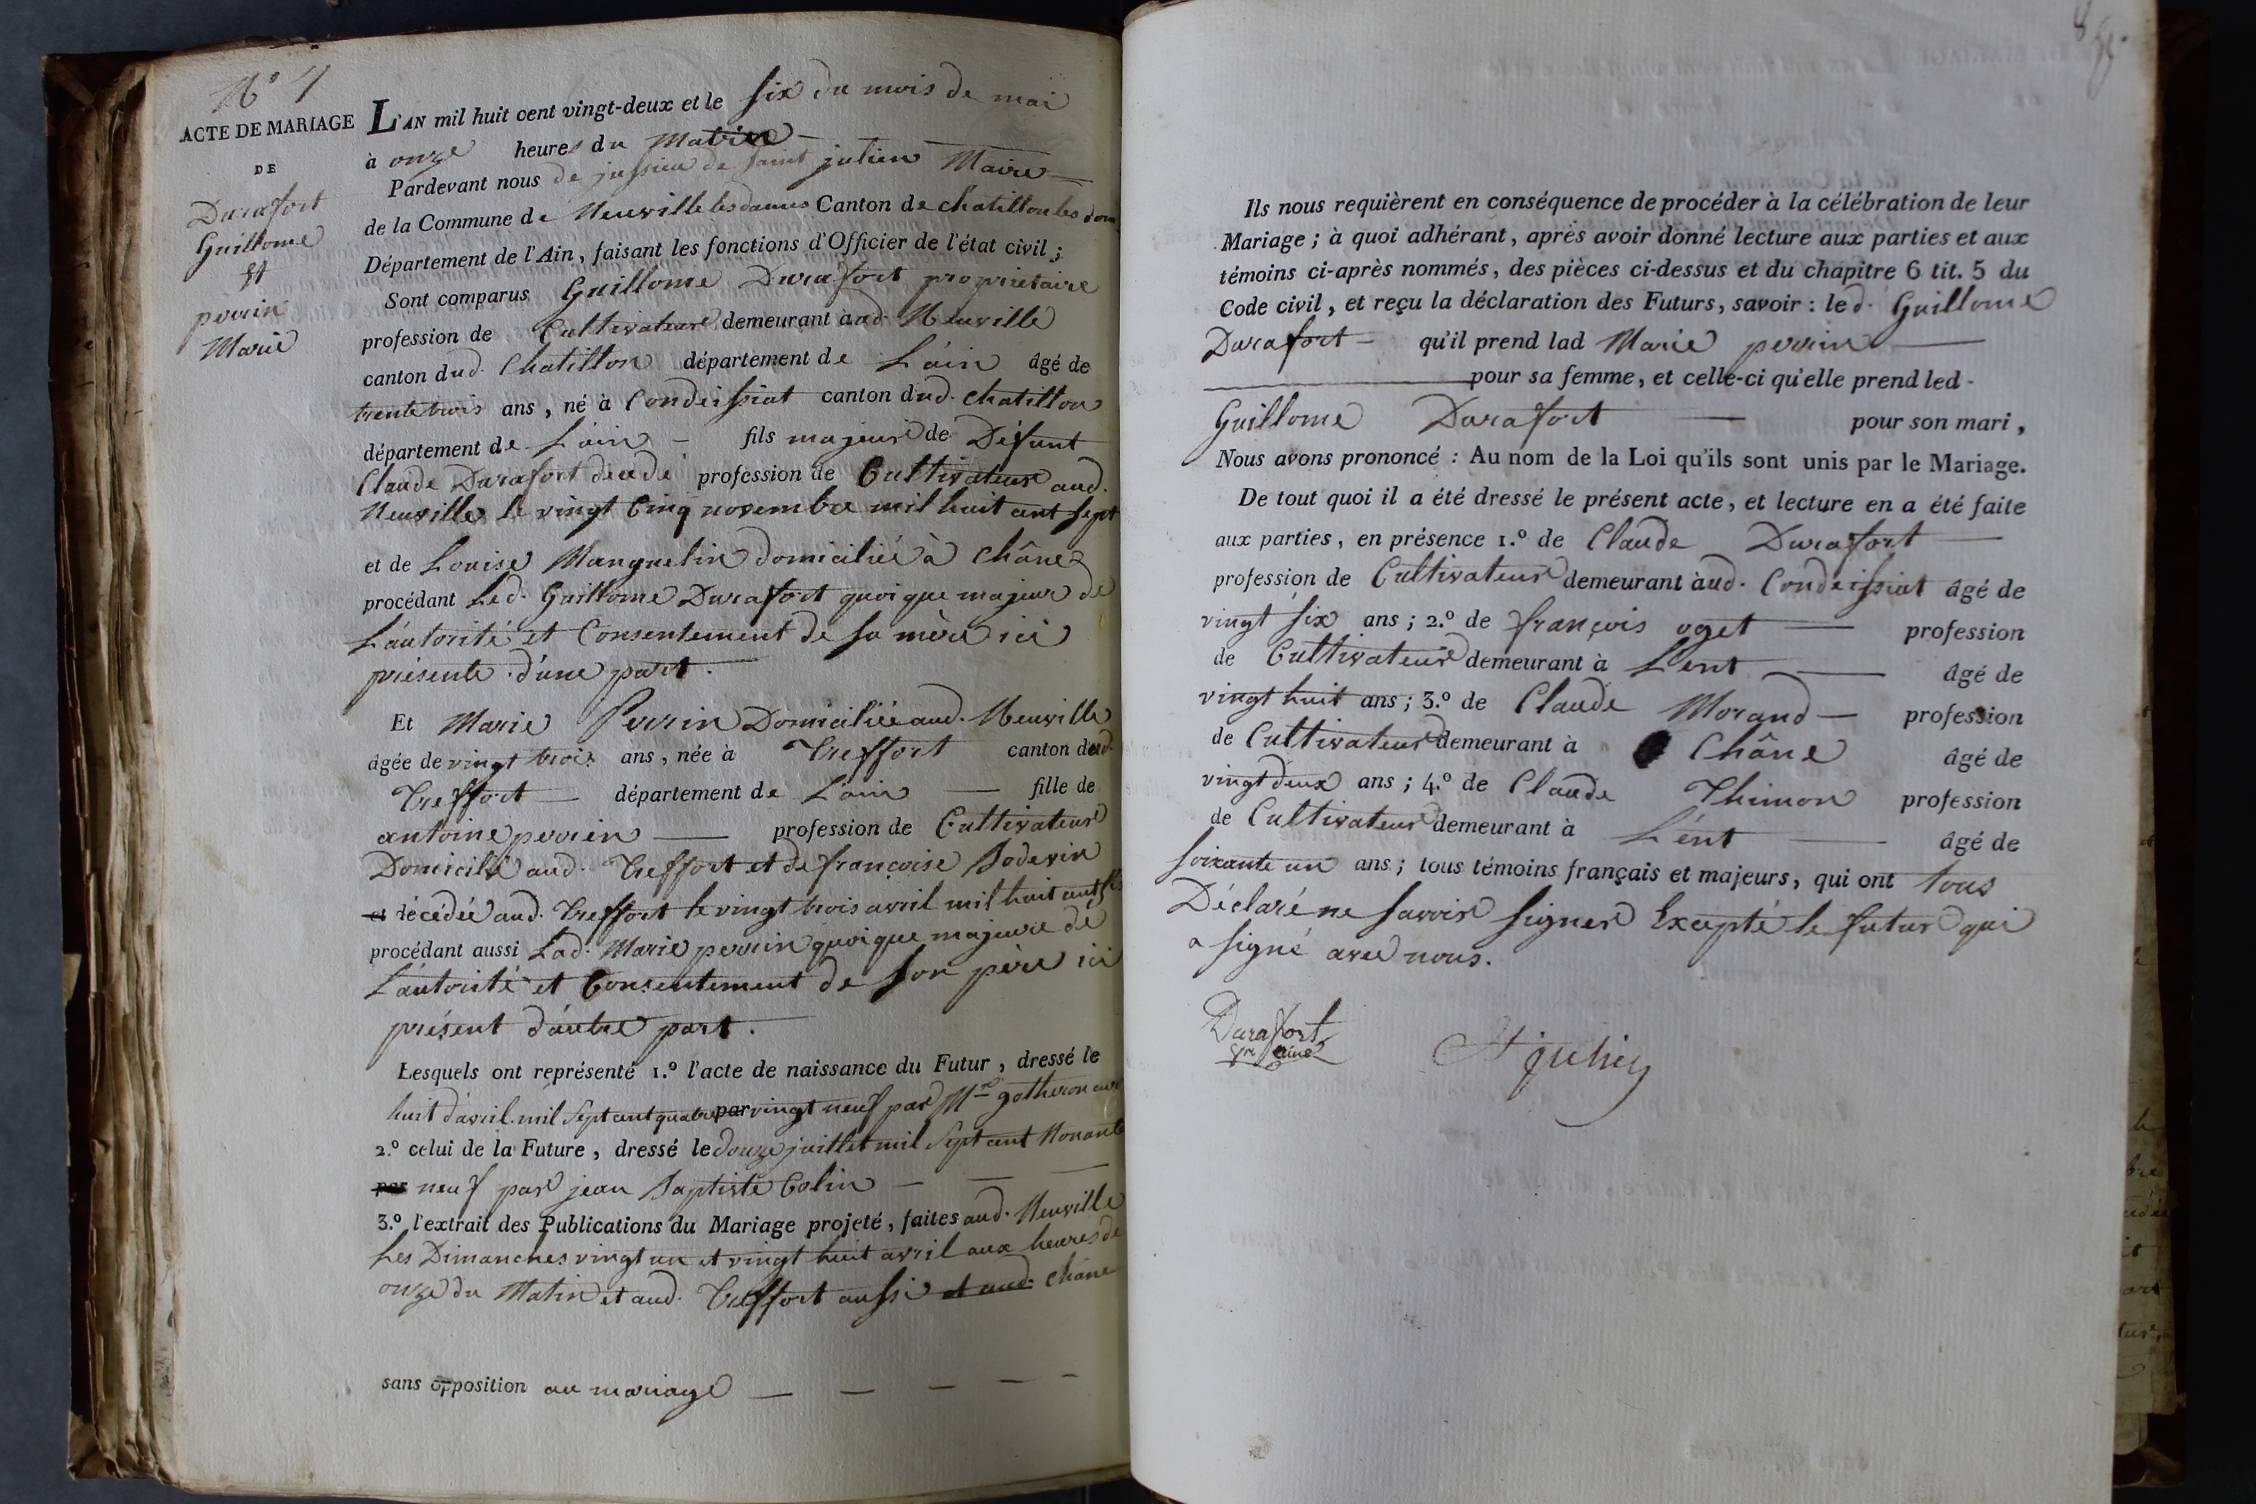 N° 7
ACTE DE MARIAGE
DE
Durafort
Guillome
Et
perrin
Marie
L'AN mil huit cent vingt-deux et le six du mois de mai
à onze heures du Matin
Pardevant nous de jussieu de saint julien Maire
de la Commune de Neuville les dames Canton de chatillon les dom
Département de l'Ain, faisant les fonctions d'Officier de l'état civil ;
Sont comparus Guillome Durafort propriétaire
profession de Cultivateur demeurant aud. Neuville
canton dud. Chatillon département de L'ain âgé de
trente trois ans, né à Condeissiat canton dud. chatillon
département de L'ain fils majeur de Défunt
Claude Durafort décédé profession de Cultivateur aud.
Neuville le vingt Cinq novembre mil huit cent sept
et de Louise Manguelin domiciliée à Châne
procédant Led. Guillome Durafort quoique majeur de
L'autorité et Consentement de sa mère ici
présente d'une part.
Et Marie Perrin Domiciliée aud. Neuville
âgée de vingt trois ans, née à Treffort canton dud.
Treffort département de L'ain fille de
antoine perrin profession de Cultivateur
Domicilié aud. Treffort et de françoise Bodevin
et décédée aud. Treffort le vingt trois avril mil huit cent
procédant aussi Lad. Marie perrin quoique majeure de
L'autorité et Consentement de son père ici
présent d'autre part.
Lesquels ont représenté 1.° l'acte de naissance du Futur, dressé le
huit d'avril mil sept cent quatre par vingt neuf par Mre gotheron curé
2.° celui de la Future, dressé le douze juillet mil sept cent Nonante
par neuf par jean Baptiste Colin
3.° l'extrait des Publications du Mariage projeté, faites aud. Neuville
Les Dimanches vingt un et vingt huit avril aux heures de
onze du Matin et aud. Treffort aussi et aud. Châne
sans opposition au mariage
Ils nous requièrent en conséquence de procéder à la célébration de leur
Mariage ; à quoi adhérant, après avoir donné lecture aux parties et aux
témoins ci-après nommés, des pièces ci-dessus et du chapitre 6 tit. 5 du
Code civil, et reçu la déclaration des Futurs, savoir : le d. Guillome
Durafort qu'il prend lad Marie perrin
pour sa femme, et celle-ci qu'elle prend led.
Guillome Durafort pour son mari,
Nous avons prononcé : Au nom de la Loi qu'ils sont unis par le Mariage.
De tout quoi il a été dressé le présent acte, et lecture en a été faite
aux parties, en présence 1.° de Claude Durafort
profession de Cultivateur demeurant àud. Condeissiat âgé de
vingt six ans ; 2.° de françois oget profession
de Cultivateur demeurant à L'ent âgé de
vingt huit ans ; 3.° de Claude Morand profession
de Cultivateur demeurant à Châne âgé de
vingt deux ans ; 4.° de Claude Thimon profession
de Cultivateur demeurant à L'ént âgé de
soixante un ans ; tous témoins français et majeurs, qui ont tous
Déclaré ne savoir signer Excepté le futur qui
a signé avec nous.
Durafort
gme ainé
St julien